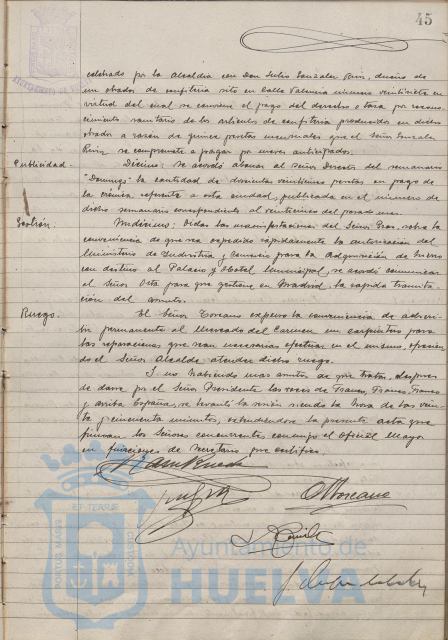 45
celebrado por la Alcaldia con Don Julio Gonzalez Ruiz, dueño de
un obrador de confiteria sito en Calle Valencia numero veintisiete en
virtud del cual se conviene el pago del derecho o tasa por recono-
cimiento sanitario de los articulos de confiteria producidos en dicho
obrador a razón de quince pesetas mensuales que el Señor Gonzalez
Ruiz se compromete a pagar por meses anticipados.
Publicidad.- Décimo: se acordó abonar al Señor Director del semanario
"Domingo" la cantidad de doscientas veinticinco pesetas en pago de
la crónica referente a esta ciudad, publicada en el número de
dicho semanario correspondiente al veinticinco del pasado mes.
Gestión.- Undécimo: Oidas las manifestaciones del Señor sobre la
conveniencia de que sea expedido rápidamente la autorización del
Ministerio de Industria y Comercio para la adquisición de hierro
con destino al Palacio y Hotel Municipal, se acordó comunicar
al Señor para que gestione, en Madrid, la rapida tramita-
ción del asunto.
Ruego.- El Señor Toscano expuso la conveniencia de adscri-
bir permanentemente al Mercado del Carmen un carpintero para
las reparaciones que sean necesarias efectuar en el mismo, ofrecien-
do el Señor Alcalde atender dicho ruego.
Y no habiendo mas asuntos de que tratar, despues
de darse por el Señor Presidente las voces de Franco, Franco, Franco
y Arriba España, se levantó la sesión siendo la hora de las vein-
te y cincuenta minutos, extendiendose la presente acta que
firman los Señores concurrentes conmigo el Oficial Mayor
en funciones de Secretario que certifico.
O Toscano
PORTUS MARIS
ET TERRAE
CUSTODIA
Ayuntamiento de
HUELVA